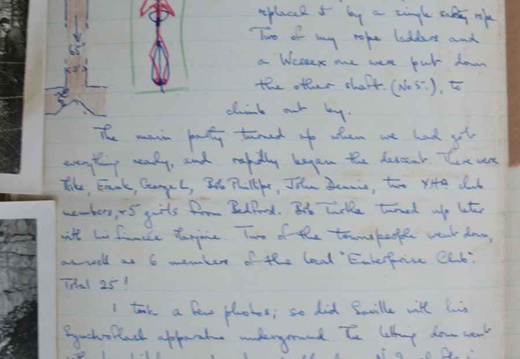 replaced it by a single safety rope
Two of my rope ladders and
a Wessex one were put down
the other shaft. (No 5.), to
climb out by.
The main party turned up when we had got
everything ready, and rapidly began the descent. There were
Mike, Frank, George L, Bob Phillips, John Dennis, two YHA club
members, + 5 girls from Bedford. Bob turned up later
with his fiancée Marjorie. Two of the townspeople went down,
as well as 6 members of the local "Enterprise Club".
Total 25!
I took a few photos; so did Saville with his
Synchroflash apparatus underground. The letting down went